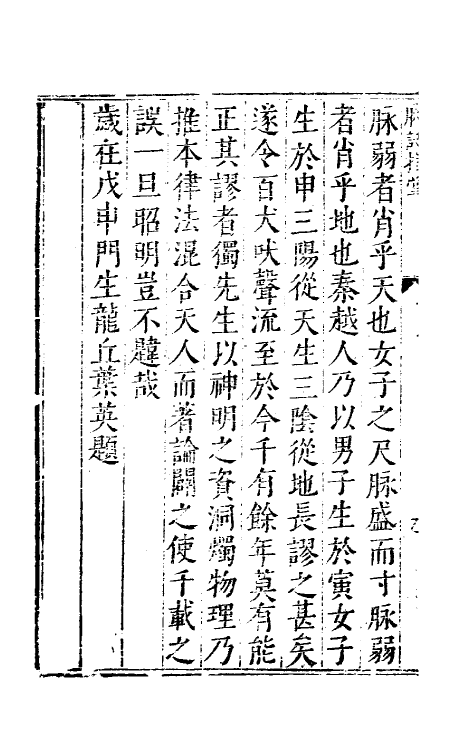 脉弱者肖乎天也女子之尺脉盛而寸脉弱
者肖乎地也秦越人乃以男子生於寅女子
生於申三陽從天生三陰從地長謬之甚矣
遂令百犬吠聲流至於今千有餘年莫有能
正其謬者獨先生以神明之資洞燭物理乃
推本律法混合天人而著論闢之使千載之
誤一旦昭明豈不韙哉
歲在戊申門生龍丘葉英題